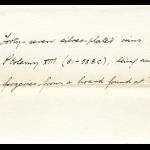 Forty-seven silver-plated coins
Ptolemy XIII (81-58 B.C.), being an
forgeries from a hoard found at